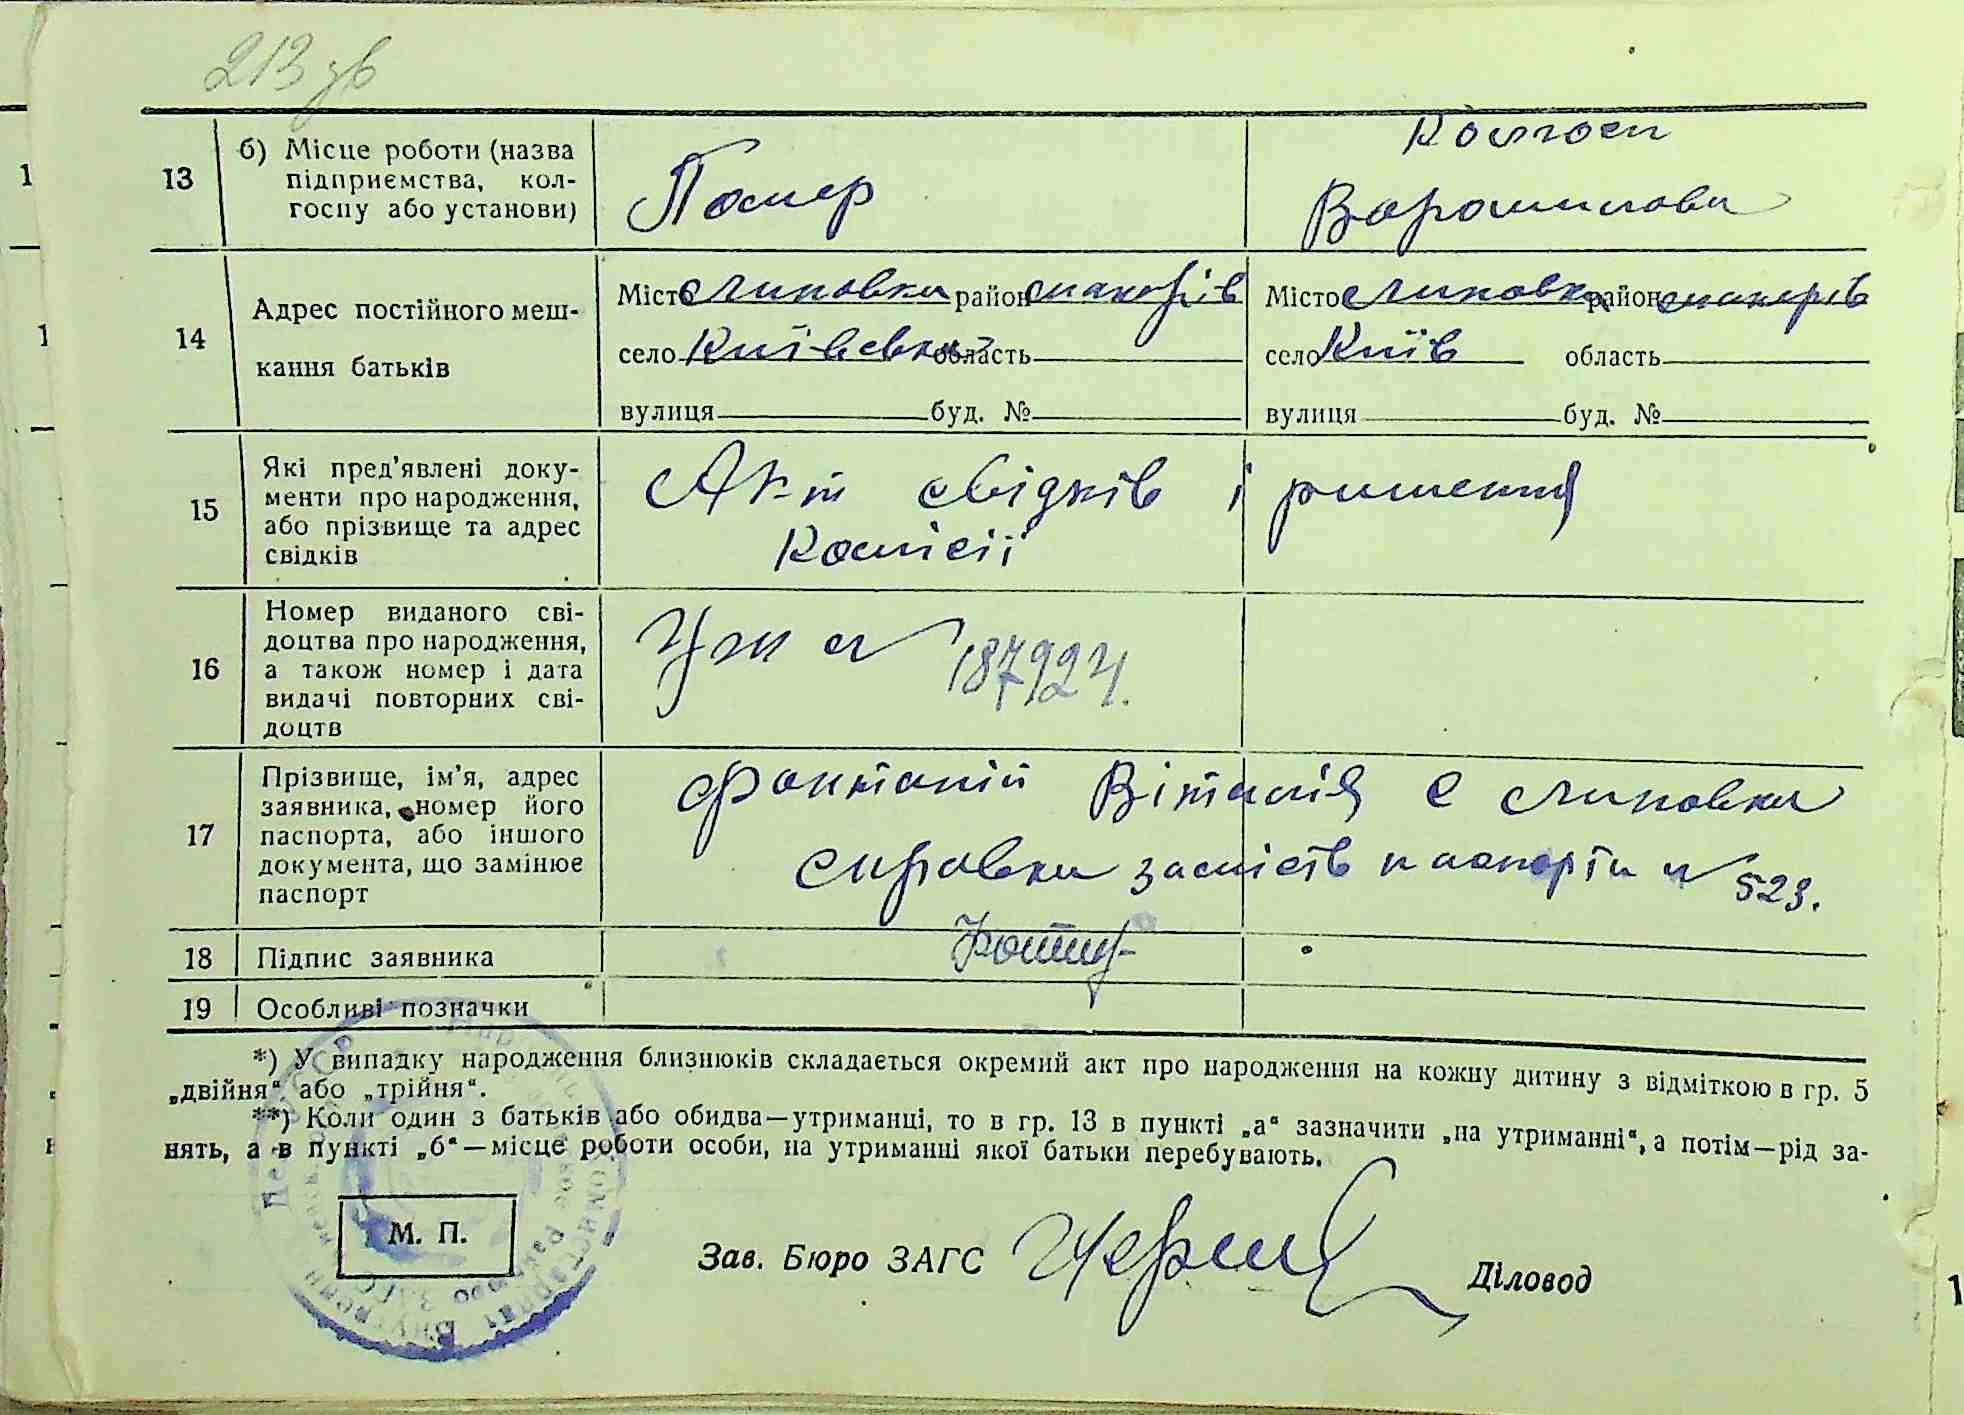 213 зв
13
б) Місце роботи (назва
підприємства, кол-
госпу або установи)
Помер
Колгосп
Ворошилова
14
Адрес постійного меш-
кання батьків
Місто Липовка район Макарів
село Київська область
вулиця буд. №
Місто Липовка район Макарів
село Київ область
вулиця буд. №
15
Які пред'явлені доку-
менти про народження,
або прізвище та адрес
свідків
Акт свідків і ришення
Комісії
16
Номер виданого сві-
доцтва про народження,
а також номер і дата
видачі повторних сві-
доцтв
№ 187924.
17
Прізвище, ім'я, адрес
заявника, номер його
паспорта, або іншого
документа, що замінює
паспорт
Віталій с Липовка
справка замість паспорта № 523.
18
Підпис заявника
19
Особливі позначки
*) У випадку народження близнюків складається окремий акт про народження на кожну дитину з відміткою в гр. 5
„двійня“ або „трійня“.
**) Коли один з батьків або обидва—утриманці, то в гр. 13 в пункті „а“ зазначити „на утриманні“, а потім—рід за-
нять, а в пункті „б“—місце роботи особи, на утриманні якої батьки перебувають.
М. П.
Зав. Бюро ЗАГС
Діловод